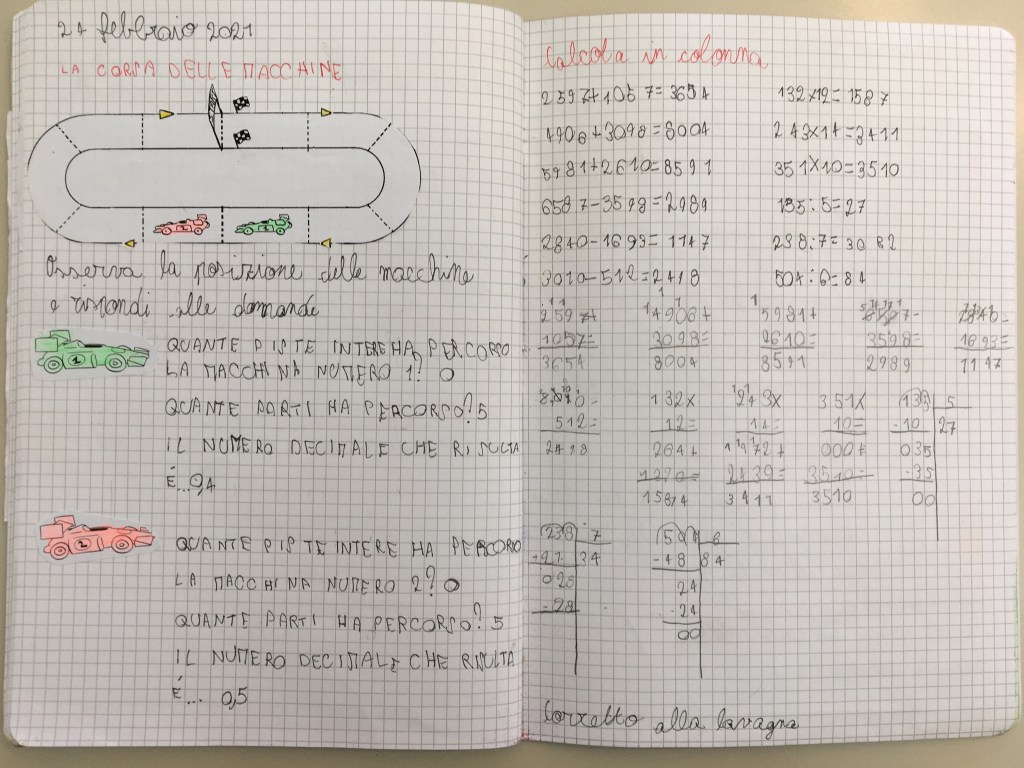 24 febbraio 2021
LA CORSA DELLE MACCHINE
Osserva la posizione delle macchine
e rispondi alle domande
QUANTE PISTE INTERE HA PERCORSO
LA MACCHINA NUMERO 1? 0
QUANTE PARTI HA PERCORSO? 5
IL NUMERO DECIMALE CHE RISULTA
É... 0,4
QUANTE PISTE INTERE HA PERCORSO
LA MACCHINA NUMERO 2? 0
QUANTE PARTI HA PERCORSO? 5
IL NUMERO DECIMALE CHE RISULTA
É... 0,5
Calcola in colonna
2597+1057=3654 132×12=1587
4906+3098=8004 243×14=3411
5981+2610=8591 351×10=3510
6587-3598=2989 135:5=27
2840-1693=1147 238:7=30 R2
3010-512=2418 504:6=84
2597+ 4906+ 5981+
1057= 3098= 2610= 3598= 1693=
3654 8004 8591 2989 1147
132× 243× 351× 135 5
512= 12= 14= 10= -10 27
2418 264+ 972+ 000+ 035
1320= 2439= 3510= -35
1584 3411 3510 00
238 7 504 6
-21 34 -48 84
028 24
-28 -24
00
Corretto alla lavagna